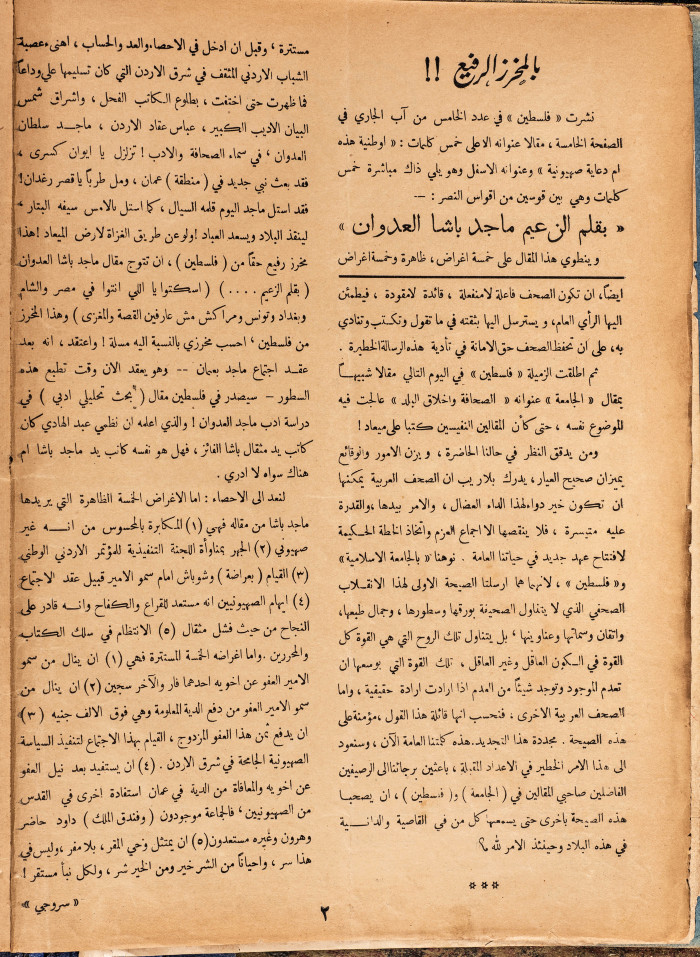 بالمخرز الرفيع !!
نشرت « فلسطين » في عدد الخامس من آب الجاري في
الصفحة الخامسة ، مقالا عنوانه الاعلى خمس كلمات : « اوطنية هذه
ام دعاية صهيونية » وعنوانه الاسفل وهو يلي ذاك مباشرة خمس
كلمات وهي بين قوسين من اقواس النصر : —
« بقلم الزعيم ماجد باشا العدوان »
وينطوي هذا المقال على خمسة اغراض ، ظاهرة وخمسة اغراض
ايضاً، ان تكون الصحف فاعلة لا منفعلة ، قائدة لا مقودة ، فيطمئن
اليها الرأي العام، ويسترسل اليها بثقته في ما تقول وتكتب وتنادي
به، على ان تحفظ الصحف حق الامانة في تأدية هذه الرسالة الخطيرة .
ثم اطلقت الزميلة « فلسطين » في اليوم التالي مقالا شبيهاً
بمقال « الجامعة » عنوانه « الصحافة واخلاق البلد » عالجت فيه
الموضوع نفسه ، حتى كأن المقالين النفيسين كتبا على ميعاد !
ومن يدقق النظر في حالنا الحاضرة ، ويزن الامور والوقائع
بميزان صحيح العيار، يدرك بلا ريب ان الصحف العربية يمكنها
ان تكون خير دواء لهذا الداء العضال ، والامر بيدها ،والقدرة
عليه متيسرة ، فلا ينقصها الا اجماع العزم واتخاذ الخطة الحكيمة
لافتتاح عهد جديد في حياتنا العامة . نوهنا « بالجامعة الاسلامية»
و« فلسطين » ، لانهما هما ارسلتا الصيحة الاولى لهذا الانقلاب
الصحفي الذي لا يتناول الصحيفة بورقها وسطورها ، وجمال طبعها،
واتقان وسماتها وعناوينها ‘ بل يتناول تلك الروح التي هي القوة كل
القوة في الكون العاقل وغير العاقل ، تلك القوة التي بوسعها ان
تعدم الموجود وتوجد شيئاً من العدم اذا ارادت ارادة حقيقية ، واما
الصحف العربية الاخرى ، فنحسب انها قائلة هذا القول ،مؤمنة على
هذه الصيحة . مجددة هذا التجديد. هذه كلمتنا العامة الآن ، وسنعود
الى هذا الامر الخطير في الاعداد المقبلة ، باعثين برجائنا الى الرصيفين
الفاضلين صاحبي المقالين في ( الجامعة ) و( فلسطين ) ، ان يصحبا
هذه الصيحة باخرى حتى يسمعها كل من في القاصية والدانية
في هذه البلاد وحينئذ الامر لله ؟
***
مستترة ‘ وقبل ان ادخل في الاحصاء والعد والحساب ، اهنىء عصبة
الشباب الاردني المثقف في شرق الاردن التي كان تسليمها علي وداعاً
فما ظهرت حتى اختفت ، بطلوع الكاتب الفحل ، واشراق شمس
البيان الاديب الكبير ، عباس عقاد الاردن ، ماجد سلطان
العدوان ‘ في سماء الصحافة والادب ! تزلزل يا ايوان كسرى ،
فقد بعث نبي جديد في ( منطقة ) عمان ، ومل طرباً يا قصر رغدان!
فقد استل ماجد اليوم قلمه السيال ، كما استل بالامس سيفه البتار
لينقذ البلاد ويسعد العباد !ولو عن طريق الغزاة لارض الميعاد !هذا
مخرز رفيع حقاً من ( فلسطين ) ، ان تتوج مقال ماجد باشا العدوان
( بقلم الزعيم . . . . ) ( اسكتوا يا اللي انتوا في مصر والشام
وبغداد وتونس ومراكش مش عارفين القصة والمغزى ) وهذا المخرز
من فلسطين ‘ احسب مخرزي بالنسبة اليه مسلة ! واعتقد ، انه بعد
عقد اجتماع ماجد بعمان -- وهو يعقد الان وقت تطبع هذه
السطور – سيصدر في فلسطين مقال ( بحث تحليلي ادبي ) في
دراسة ادب ماجد العدوان ! والذي اعلمه ان نظمي عبد الهادي كان
كاتب يد مثقال باشا الفائز ، فهل هو نفسه كاتب يد ماجد باشا ام
هناك سواه لا ادري .
لنعد الى الاحصاء : اما الاغراض الخمسة الظاهرة التي يريدها
ماجد باشا من مقاله فهي (١) المكابرة بالمحسوس من انه غير
صهيوني (٢) الجهر بمناوأة اللجنة التنفيذية للمؤتمر الاردني الوطني
(٣) القيام ( بعراضة ) وشوباش امام سمو الامير قبيل عقد الاجتماع
(٤) ايهام الصهيونيين انه مستعد للقراع والكفاح وانه قادر على
النجاح من حيث فشل مثقال (٥) الانتظام في سلك الكتاب
والمحررين . واما اغراضه الخمسة المستترة فهي (١) ان ينال من سمو
الامير العفو عن اخويه احدهما فار والآخر سجين (٢) ان ينال من
سمو الامير العفو من دفع الدية المعلومة وهي فوق الالف جنيه (٣)
ان يدفع ثمن هذا العفو المزدوج ، القيام بهذا الاجتماع لتنفيذ السياسة
الصهيونية الجامحة في شرق الاردن . (٤) ان يستفيد بعد نيل العفو
عن اخويه والمعافاة من الدية في عمان استفادة اخرى في القدس
من الصهيونيين ‘ فالجماعة موجودون ( وفندق الملك ) داود حاضر
وهرون وغيره مستعدون (٥) ان يمتثل وحي المقر ، بلا مفر ،وليس في
هذا سر ، واحياناً من الشر خير ومن الخير شر ، ولكل نبأ مستقر !
« سروجي »
٢